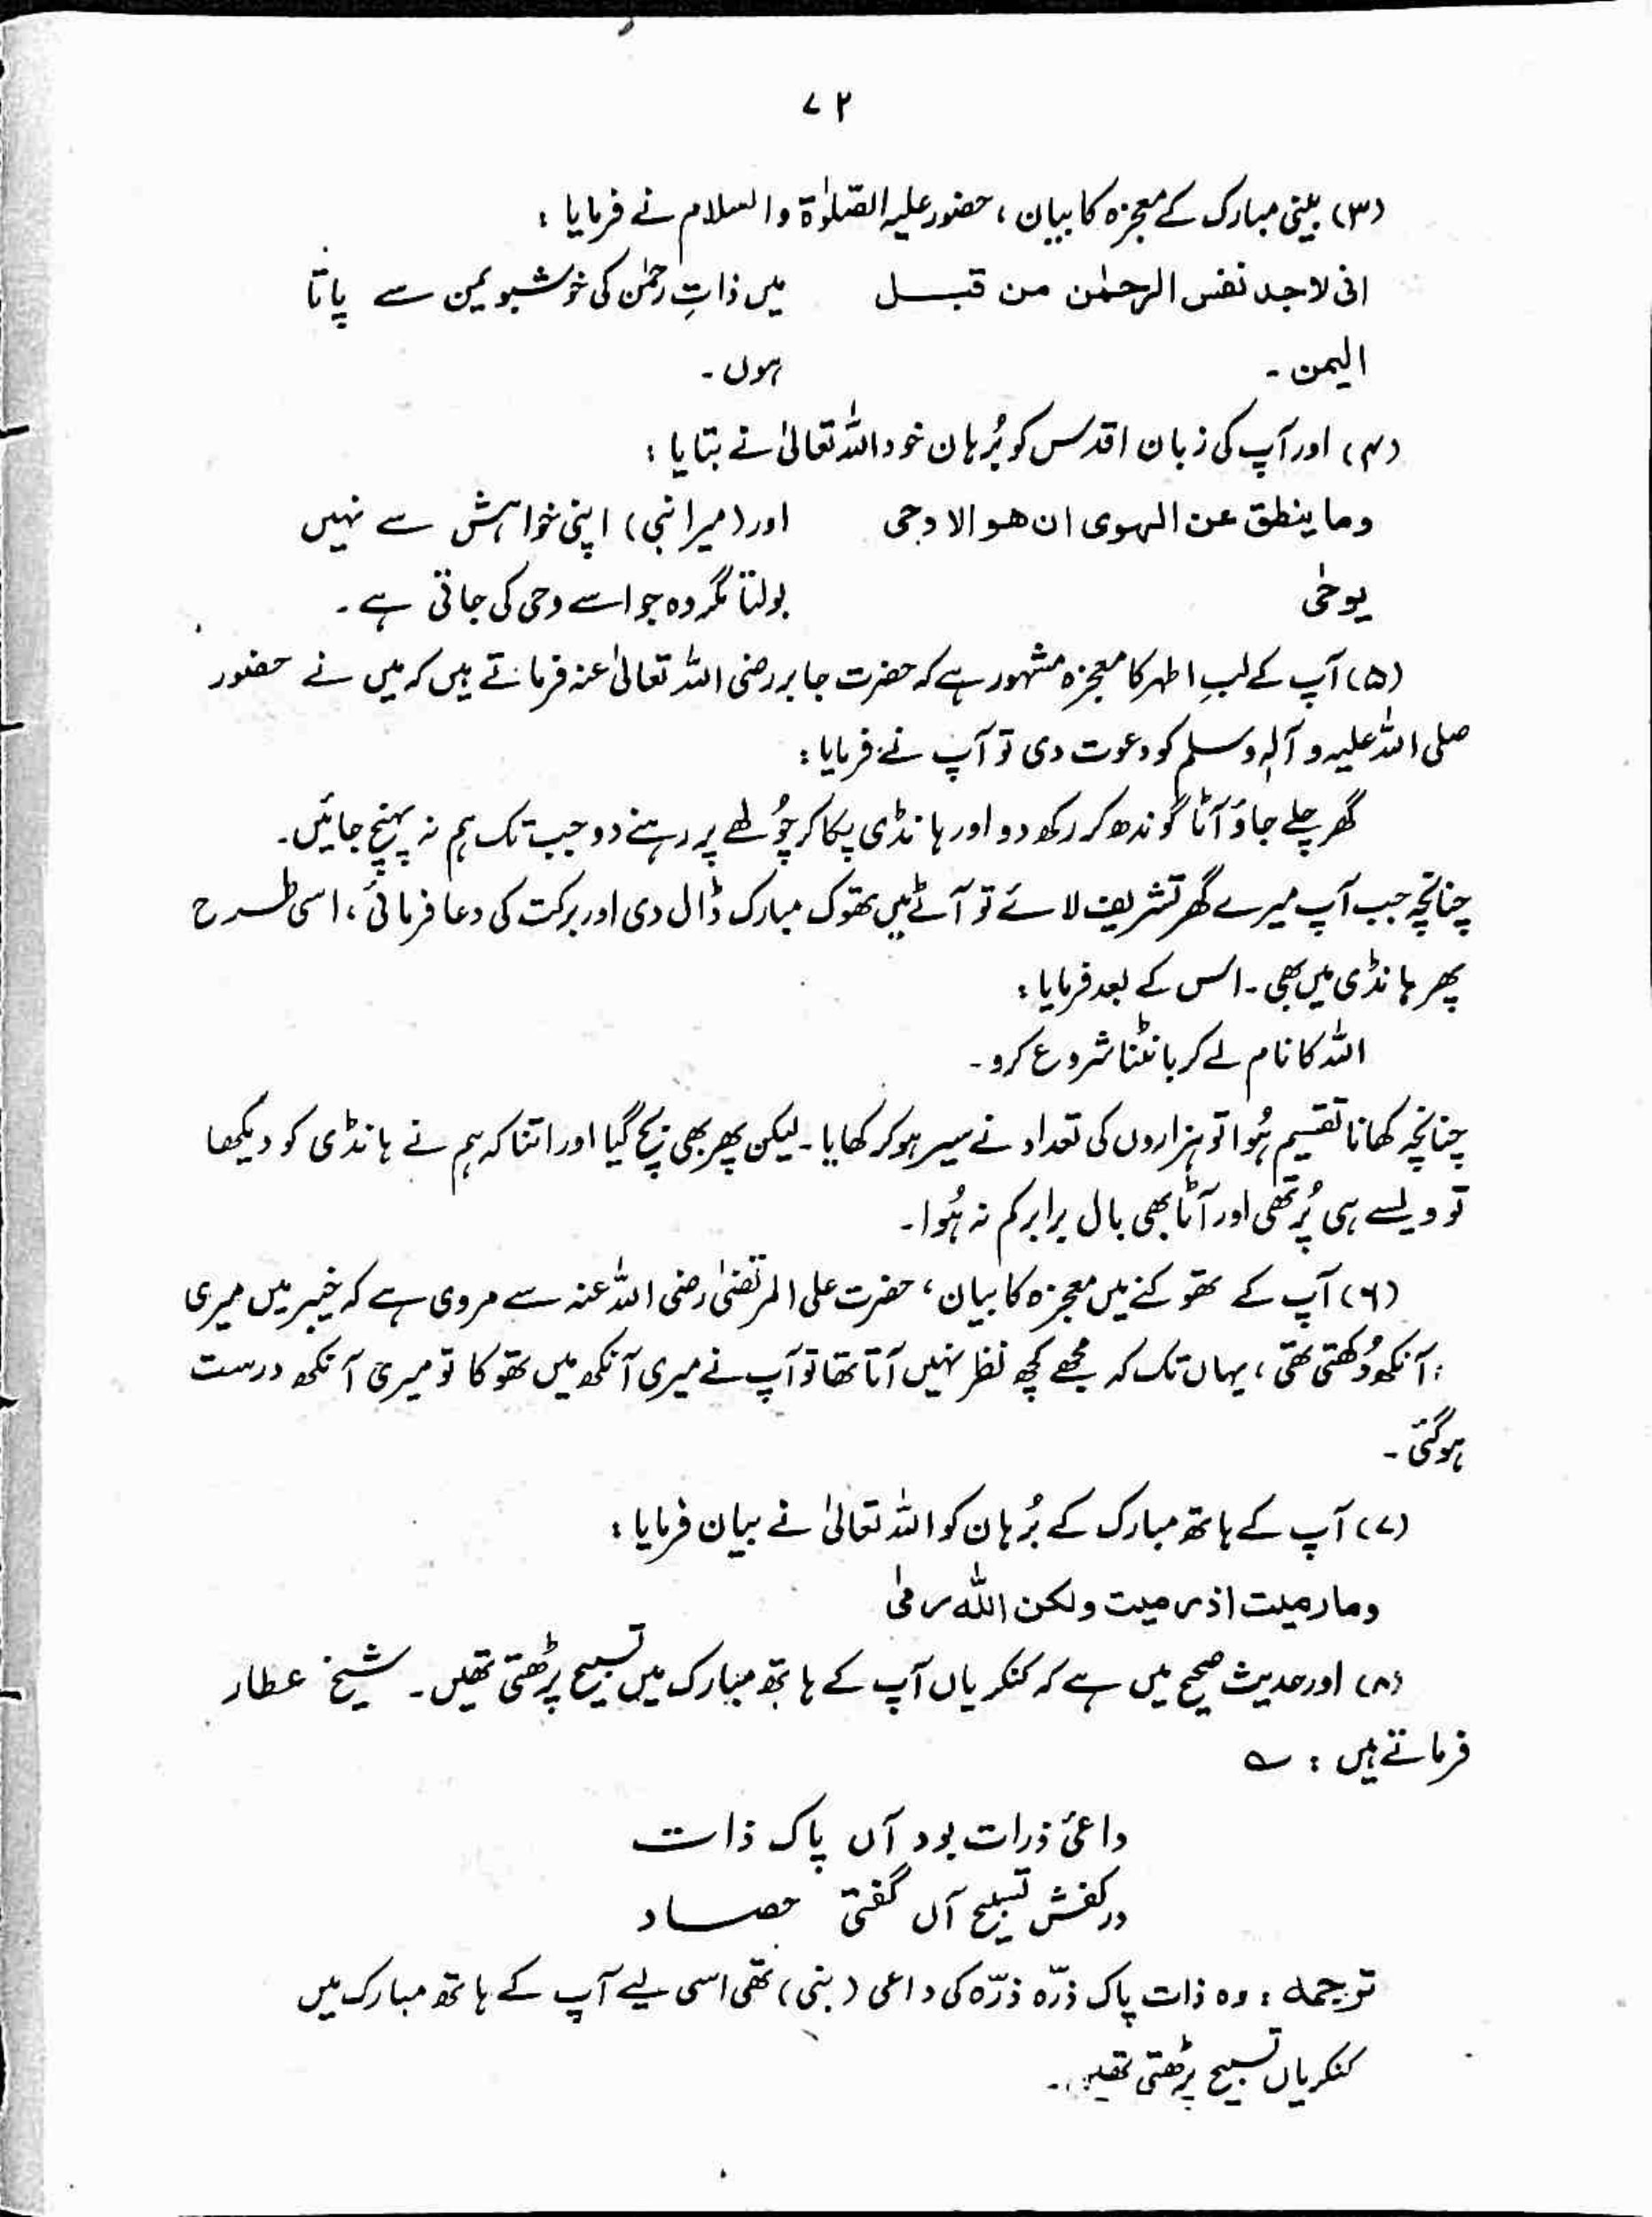 ۷۲
(۳) بینی مبارک کے معجزہ کا بیان، حضور علیہ الصّلوٰۃ والسلام نے فرمایا :
انی لاجد نفس الرحمٰن من قبل میں ذاتِ رحمٰن کی خوشبو یمن سے پاتا
الیمن ۔ ہوں ۔
(۴) اور آپ کی زبان اقدس کو بُرہان خود اللہ تعالیٰ نے بتایا :
وما ینطق عن الہوی ان ھو الا وحی اور (میرا نبی) اپنی خواہش سے نہیں
یوحٰی بولتا مگر وہ جو اسے وحی کی جاتی ہے ۔
(۵) آپ کے لبِ اطہر کا معجزہ مشہور ہے کہ حضرت جابر رضی اللہ تعالیٰ عنہ فرماتے ہیں کہ میں نے حضور
صلی اللہ علیہ و آلہٖ وسلم کو دعوت دی تو آپ نے فرمایا :
گھر چلے جاؤ آٹا گوندھ کر رکھ دو اور ہانڈی پکا کر چُولھے پر رہنے دو جب تک ہم نہ پہنچ جائیں ۔
چنانچہ جب آپ میرے گھر تشریف لائے تو آٹے میں تھوک مبارک ڈال دی اور برکت کی دعا فرمائی، اسی طرح
پھر ہانڈی میں بھی ۔ اس کے بعد فرمایا :
اللہ کا نام لے کر بانٹنا شروع کرو ۔
چنانچہ کھانا تقسیم ہُوا تو ہزاروں کی تعداد نے سیر ہو کر کھایا ۔ لیکن پھر بھی بچ گیا اور اتنا کہ ہم نے ہانڈی کو دیکھا
تو ویسے ہی پُر تھی اور آٹا بھی بال برابر کم نہ ہُوا ۔
(۶) آپ کے تھوکنے میں معجزہ کا بیان، حضرت علی المرتضیٰ رضی اللہ عنہ سے مروی ہے کہ خیبر میں میری
آنکھ دُکھتی تھی، یہاں تک کہ مجھے کچھ نظر نہیں آتا تھا تو آپ نے میری آنکھ میں تھوکا تو میری آنکھ درست
ہو گئی ۔
(۷) آپ کے ہاتھ مبارک کے بُرہان کو اللہ تعالیٰ نے بیان فرمایا :
وما رمیت اذ رمیت ولکن اللہ رمٰی
(۸) اور حدیث صحیح میں ہے کہ کنکریاں آپ کے ہاتھ مبارک میں تسبیح پڑھتی تھیں ۔ شیخ عطار
فرماتے ہیں : ؎
داعئ ذرات بود آں پاک ذات
در کفش تسبیح آں گفتی حصاد
ترجمہ : وہ ذات پاک ذرّہ ذرّہ کی داعی (بنی) تھی اسی لیے آپ کے ہاتھ مبارک میں
کنکریاں تسبیح پڑھتی تھیں ۔